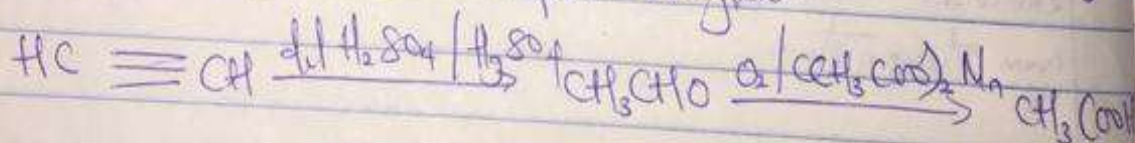 HC ≡ CH dil H₂SO₄ / HgSO₄ → CH₃CHO O₂ / (CH₃COO)₂ Mn → CH₃COOH